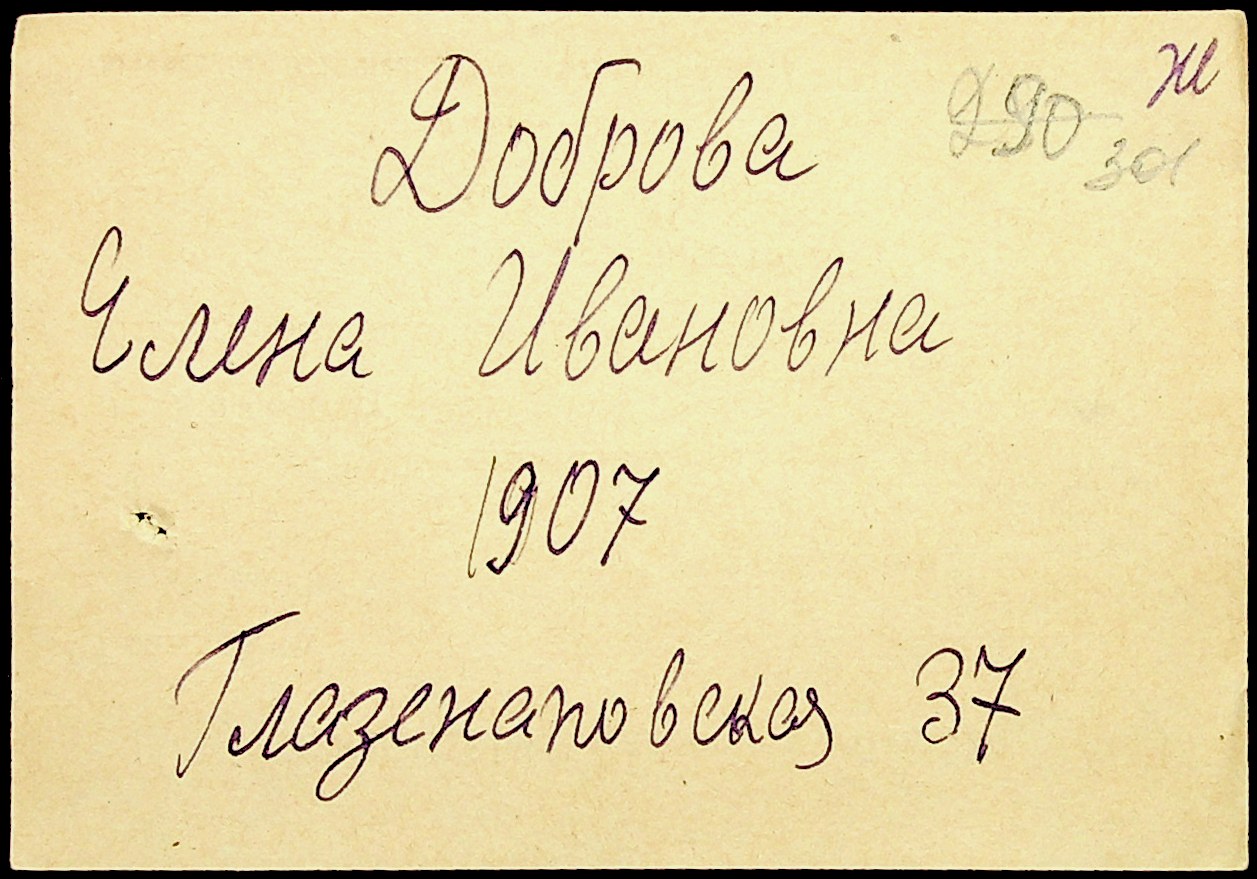 Ж
Доброва
Елена Ивановна
1907
Глазенаповская 37